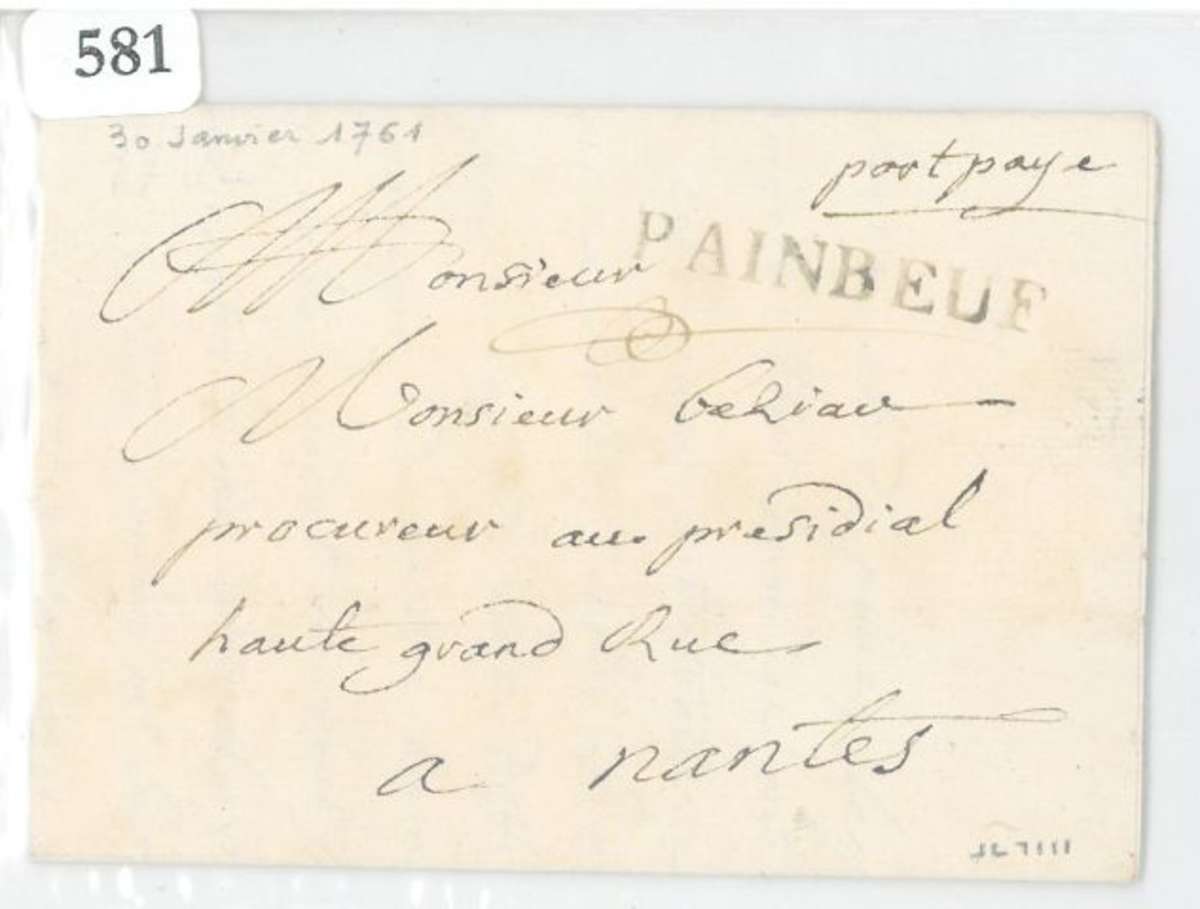 581
30 Janvier 1761
port paye
PAINBEUF
Monsieur
Monsieur
procureur au presidial
haute grand Rue
a nantes